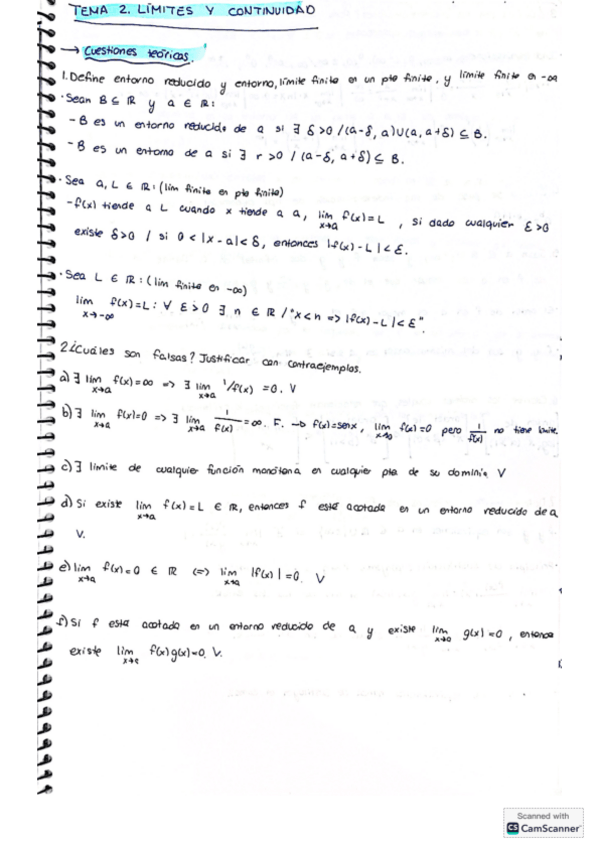 TEMA 2. LÍMITES Y CONTINUIDAD
→ Cuestiones teóricas.
1. Define entorno reducido y entorno, límite finito en un pto finito, y límite finito en -∞
· Sean B ⊆ ℝ y a ∈ ℝ:
- B es un entorno reducido de a si ∃ δ>0 / (a-δ, a)∪(a, a+δ) ⊆ B.
- B es un entorno de a si ∃ r>0 / (a-δ, a+δ) ⊆ B.
· Sea a, L ∈ ℝ: (lim finito en pto finito)
- f(x) tiende a L cuando x tiende a a, lim x→a f(x)=L , si dado cualquier ε>0
existe δ>0 / si 0<|x-a|<δ, entonces |f(x)-L|<ε.
· Sea L ∈ ℝ: (lim finito en -∞)
lim x→-∞ f(x)=L: ∀ ε>0 ∃ n ∈ ℝ / "x<n => |f(x)-L|<ε".
2 ¿Cuáles son falsas? Justificar con contraejemplos.
a) ∃ lim x→a f(x)=∞ => ∃ lim x→a 1/f(x) =0. V
b) ∃ lim x→a f(x)=0 => ∃ lim x→a 1/f(x) =∞. F. → f(x)=senx, lim x→0 f(x)=0 pero 1/f(x) no tiene límite.
c) ∃ límite de cualquier función monótona en cualquier pto de su dominio V
d) Si existe lim x→a f(x)=L ∈ ℝ, entonces f está acotada en un entorno reducido de a
V.
e) lim x→a f(x)=0 ∈ ℝ <=> lim x→a |f(x)|=0. V
f) Si f está acotada en un entorno reducido de a y existe lim x→a g(x)=0, entonces
existe lim f(x)g(x)=0. V.
Scanned with
CS CamScanner